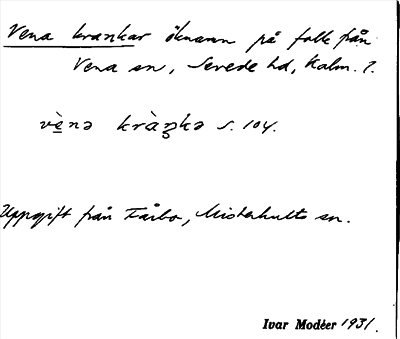 Vena krankar öknamn på folk från
Vena sn, Sevede hd, Kalm. l.
vènə kràŋkə s. 104.
Uppgift från Fårbo, Misterhults sn.
Ivar Modéer 1931.